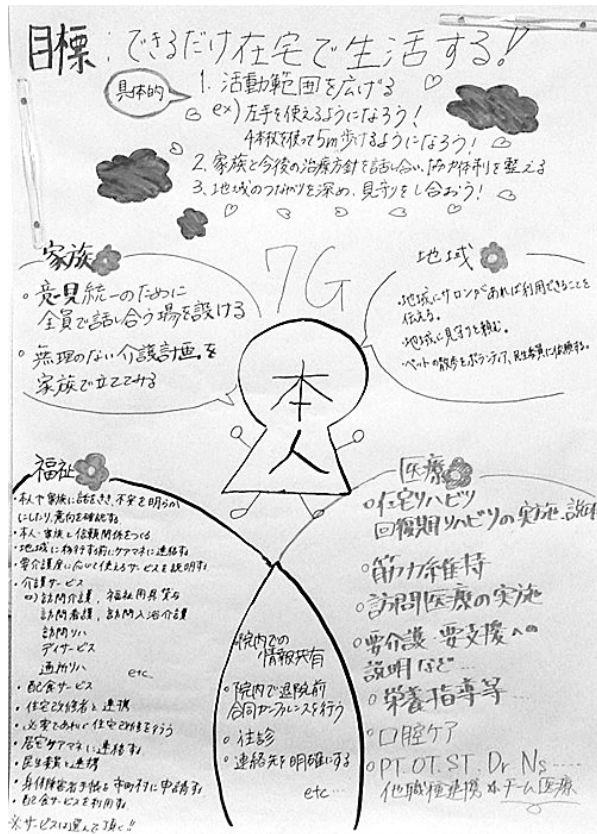 目標:できるだけ在宅で生活する!!
具体的
1. 活動範囲を広げる
ex) 左手を使えるようになろう!
4本杖を使って5m歩けるようになろう!
2. 家族と今後の治療方針を話し合い、協力体制を整える
3. 地域のつながりを深め、見守りをし合おう!
7G
家族
・意見統一のために
全員で話し合う場を設ける
・無理のない介護計画を
家族で立ててみる
地域
・地域にサロンがあれば利用できることを
伝える。
・地域に見守りを頼む。
・ペットの散歩をボランティア、民生委員に依頼する。
本人
福祉
・本人や家族に話をきき、不安を明らか
にしたり、意向を確認する
・本人・家族と信頼関係をつくる
・地域に移行する前にケアマネに連絡する
・要介護度に応じて使えるサービスを説明する
・介護サービス
訪問介護、福祉用具貸与
訪問看護、訪問入浴介護
訪問リハ
デイサービス
通所リハ etc.
・配食サービス
・住宅改修者と連携
・必要であれば住宅改修を行う
・居宅ケアマネに連絡する
・民生委員と連携
・身体障害者手帳を市町村に申請する
・配食サービスを利用する
※サービスは選んで頂く!!
院内での
情報共有
・院内で退院前
合同カンファレンスを行う
・往診
・連絡先を明確にする
etc…
医療
・在宅リハビリ
回復期リハビリの実施、説明
・筋力維持
・訪問医療の実施
・要介護・要支援への
説明など…
・栄養指導等…
・口腔ケア
・PT.OT.ST.Dr.Ns……
他職種連携 チーム医療